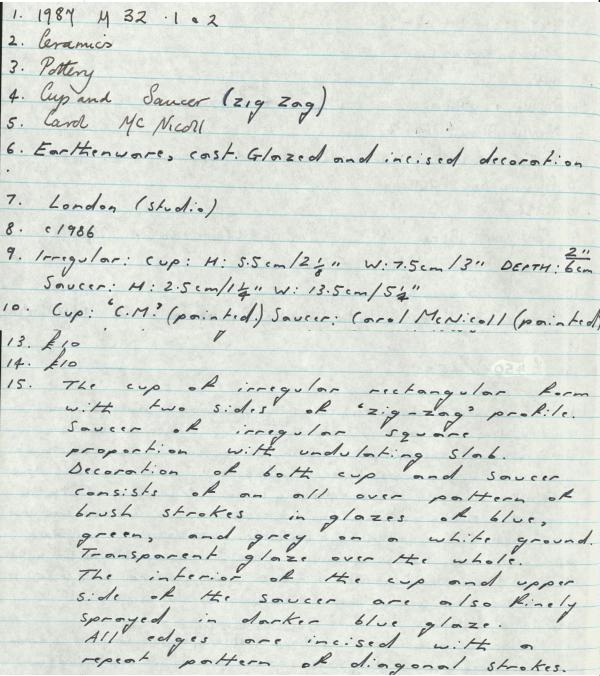 1. 1987 M 32 .1 • 2
2. Ceramics
3. Pottery
4. Cup and Saucer (zig zag)
5. Carol McNicoll
6. Earthenware, cast. Glazed and incised decoration
7. London (studio)
8. c1986
9. Irregular: Cup: H: 5.5cm/2 1/8" W: 7.5cm/3" DEPTH: 2"/6cm
Saucer: H: 2.5cm/1 1/4" W: 13.5cm/5 1/4"
10. Cup: 'C.M.' (painted.) Saucer: Carol McNicoll (painted)
13. £10
14. £10
15. The cup of irregular rectangular form
with two sides of 'zig-zag' profile.
Saucer of irregular square
proportion with undulating slab.
Decoration of both cup and saucer
consists of an all over pattern of
brush strokes in glazes of blue,
green, and grey on a white ground.
Transparent glaze over the whole.
The interior of the cup and upper
side of the saucer are also finely
sprayed in darker blue glaze.
All edges are incised with a
repeat pattern of diagonal strokes.